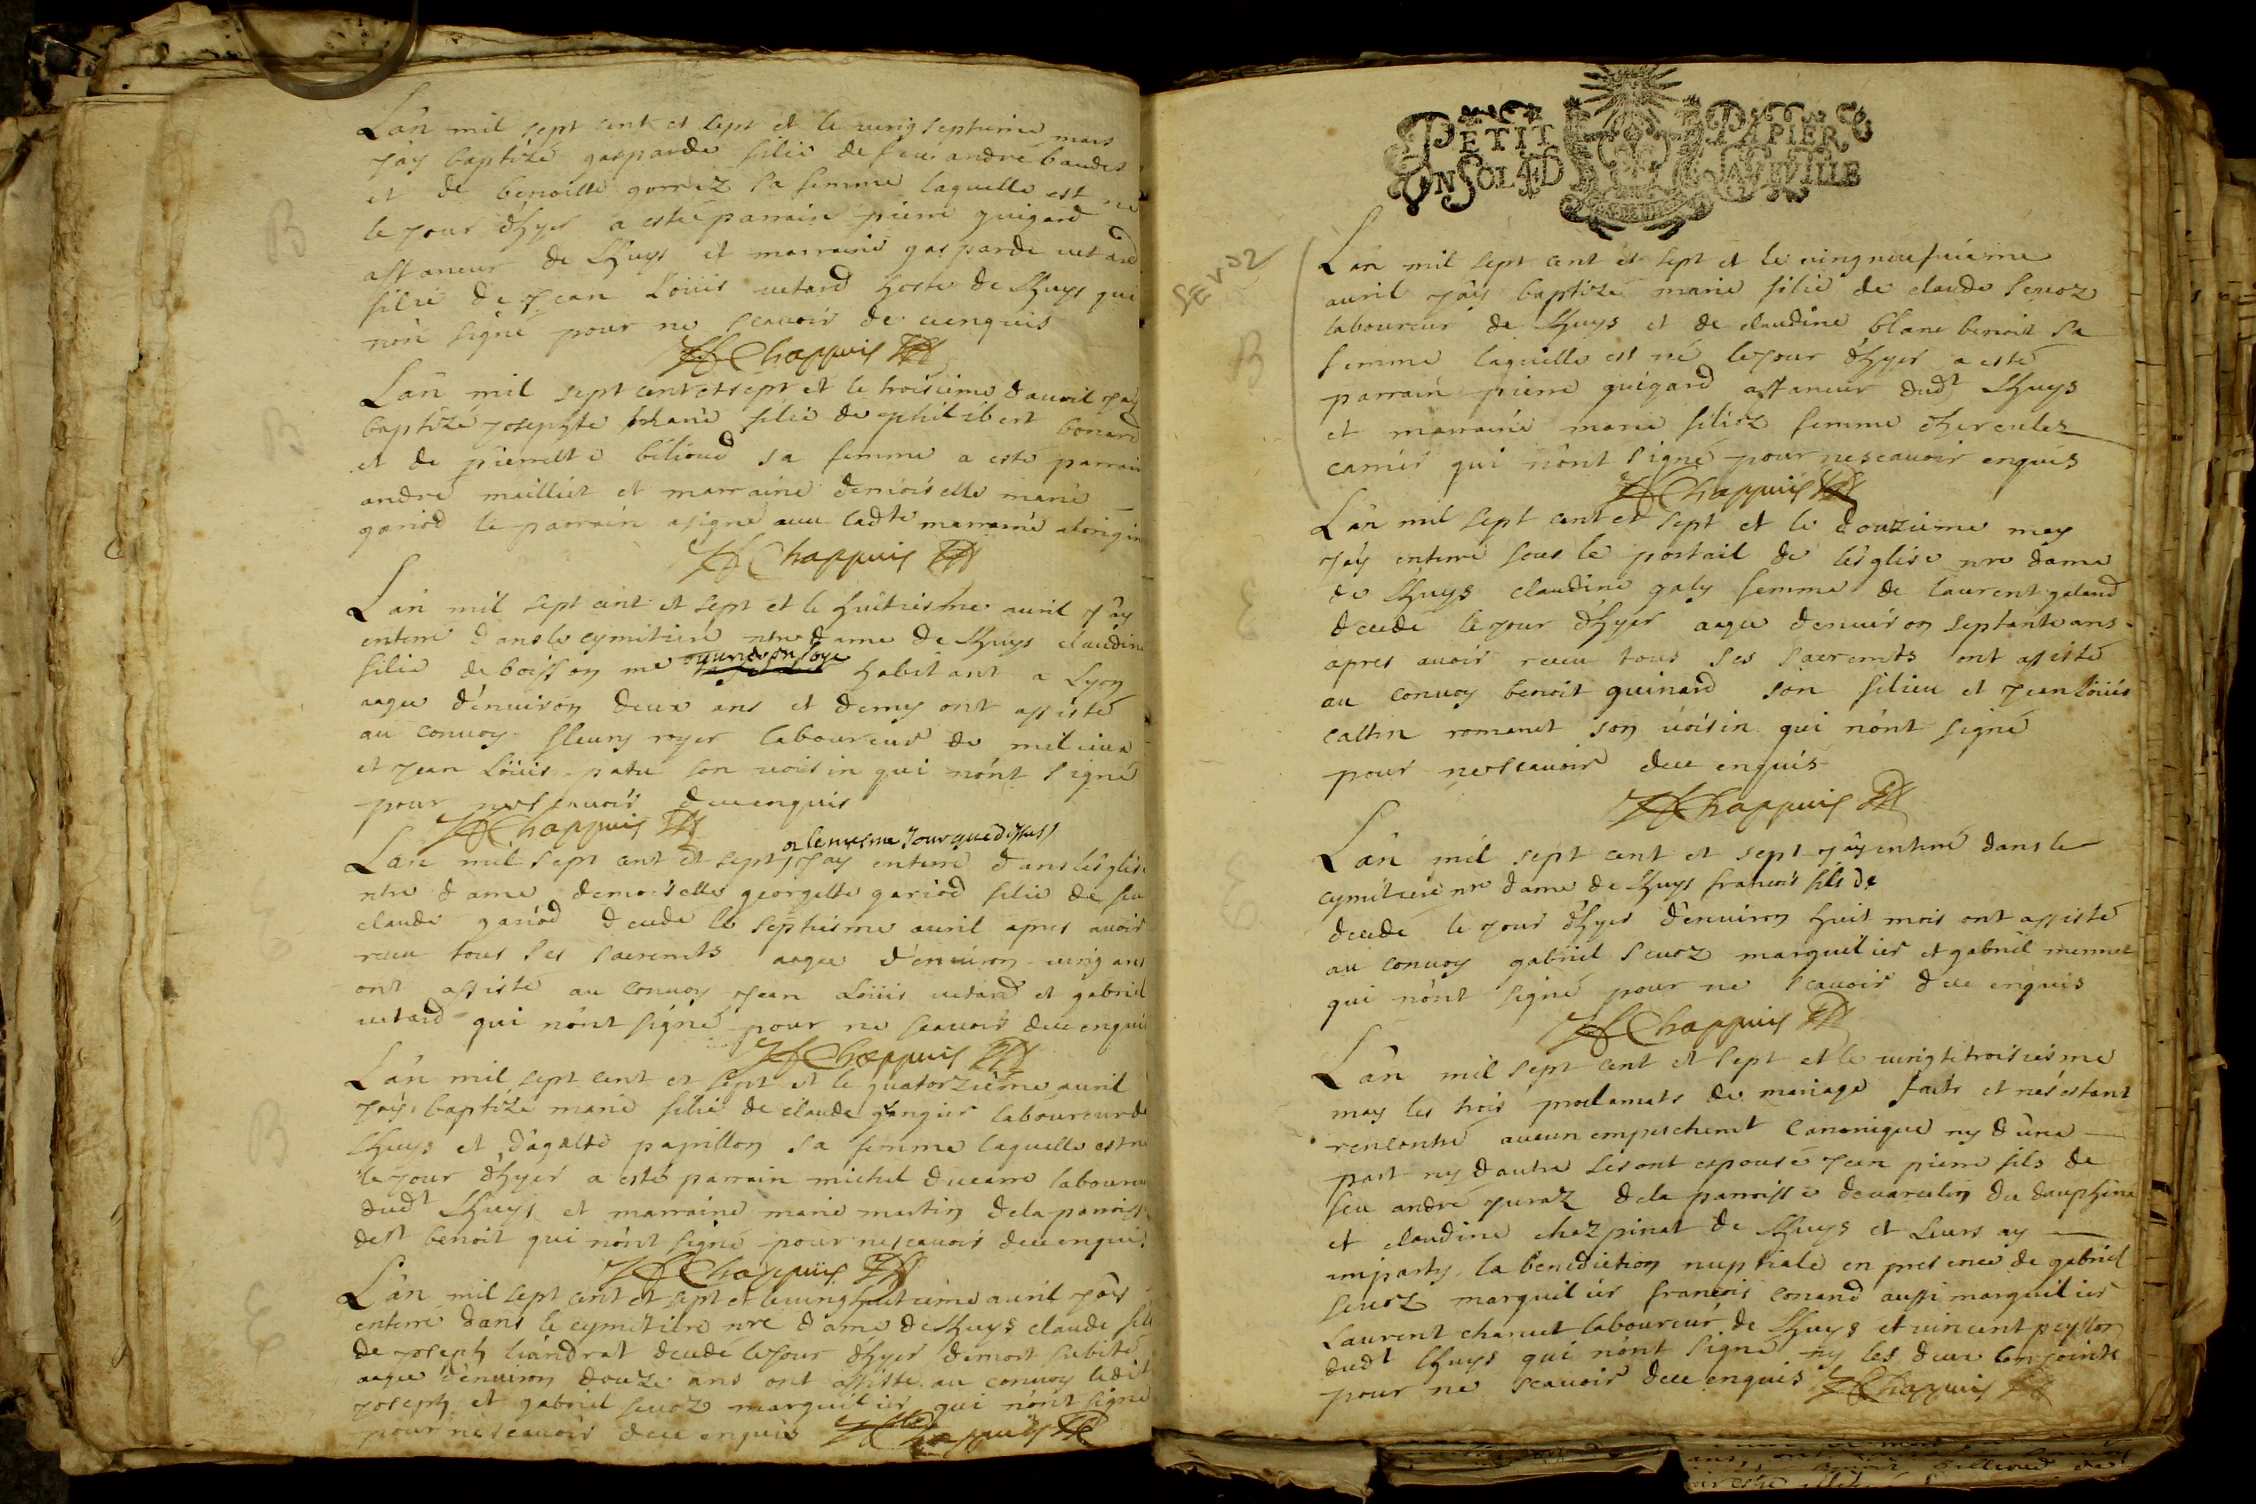 L'an mil sept cent et sept et le vingseptieme mars
j'ay baptizé gasparde fillie de feu andré baudet
et de benoitte gonnez sa femme laquelle est né
le jour d'hyer a esté parrain pierre guigard
affaneur de Lhuys et marraine gasparde vetard
fillie de Jean Loüis vetard hoste de Lhuys qui
n'on signé pour ne scavoir de ce enquis
Chappuis
L'an mil sept cent et sept et le troisieme d'avril j'ay
baptizé josephte marie fillie de philibert bonard
et de pierrette bilioud sa femme a esté parrain
andré mailliet et marraine demoiselle marie
gariod le parrain a signé avec ladte marraine a lorigin
Chappuis
L'an mil sept cent et sept et le huitiesme avril j'ay
enterré dans le cymitiere ntre dame de Lhuys claudine
fillie de boisson me ouurier en soye habitant a Lyon
aagee d'enuiron deux ans et demy ont assisté
au conuoy fleury royer laboureur de milieux
et Jean Loüis patu son uoisin qui n'ont signé
pour ne scavoir de ce enquis
Chappuis
& le mesme jour que dessus
L'an mil sept cent et sept j'ay enterré dans lesglise
ntre dame demoiselle georgette gariod fillie de feu
claude gariod decedé le septiesme avril apres avoir
receu tous ses sacremts aagee d'enuiron uing ans
ont assisté au conuoy Jean Loüis vetard et gabriel
vetard qui n'ont signé pour ne scavoir de ce enquis
Chappuis
L'an mil sept cent et sept et le quatorzieme avril
j'ay baptizé marie fillie de claude grangier laboureur de
Lhuys et d'agatte papillon sa femme laquelle est né
le jour d'hyer a esté parrain michel ducarre laboureur
dudt Lhuys et marraine marie martin de la parroisse
de st benoit qui n'ont signé pour ne scavoir de ce enquis
Chappuis
L'an mil sept cent et sept et le uinghuitieme avril j'ay
enterré dans le cymitiere nre dame de Lhuys claude fils
de joseph liandrat decedé le jour d'hyer de mort subite
aagé d'enuiron douze ans ont assisté au conuoy ledit
joseph et gabriel seuoz marguilier qui n'ont signé
pour ne scavoir de ce enquis Chappuis
PETIT PAPIER
UN SOL 4 D LA FEUILLE
SEVOZ
L'an mil sept cent et sept et le uingneufuieme
auril j'ay baptizé marie fillie de claude seuoz
laboureur de Lhuys et de claudine blanc benoit sa
femme laquelle est né le jour d'hyer a esté
parrain pierre guigard affaneur dudt Lhuys
et marraine marie filioz femme d'hercules
carrier qui n'ont signé pour ne scavoir enquis
Chappuis
L'an mil sept cent et sept et le douzieme may
j'ay enterré sous le portail de l'esglise nre dame
de Lhuys claudine galy femme de laurent galand
decedé le jour d'hyer aagee d'enuiron septante ans
apres auoir receu tous ses sacremts ont assisté
au conuoy benoit guinard son filieu et Jean Loüis
cattin romanet son uoisin qui n'ont signé
pour ne scavoir de ce enquis
Chappuis
L'an mil sept cent et sept j'ay enterré dans le
cymitiere nre dame de Lhuys francois fils de
decedé le jour d'hyer d'enuiron huit mois ont assisté
au conuoy gabriel seuoz marguilier et gabriel mermet
qui n'ont signé pour ne scavoir de ce enquis
Chappuis
L'an mil sept cent et sept et le uingtetroisiesme
may les trois proclamats de mariage faits et ne s'estant
rencontré aucun empeschemt canonique ny d'une
part ny d'autre se sont espousé Jean pierre fils de
feu andré juraz de la parroisse de uarcelin du dauphiné
et claudine chozpinat de Lhuys et leurs ay
imparty la benediction nuptiale en presence de gabriel
seuoz marguilier francois conand aussi marguilier
Laurent charuet laboureur de Lhuys et uincent peyllon
dudt Lhuys qui n'ont signé ny les deux conjoints
pour ne scavoir de ce enquis Chappuis